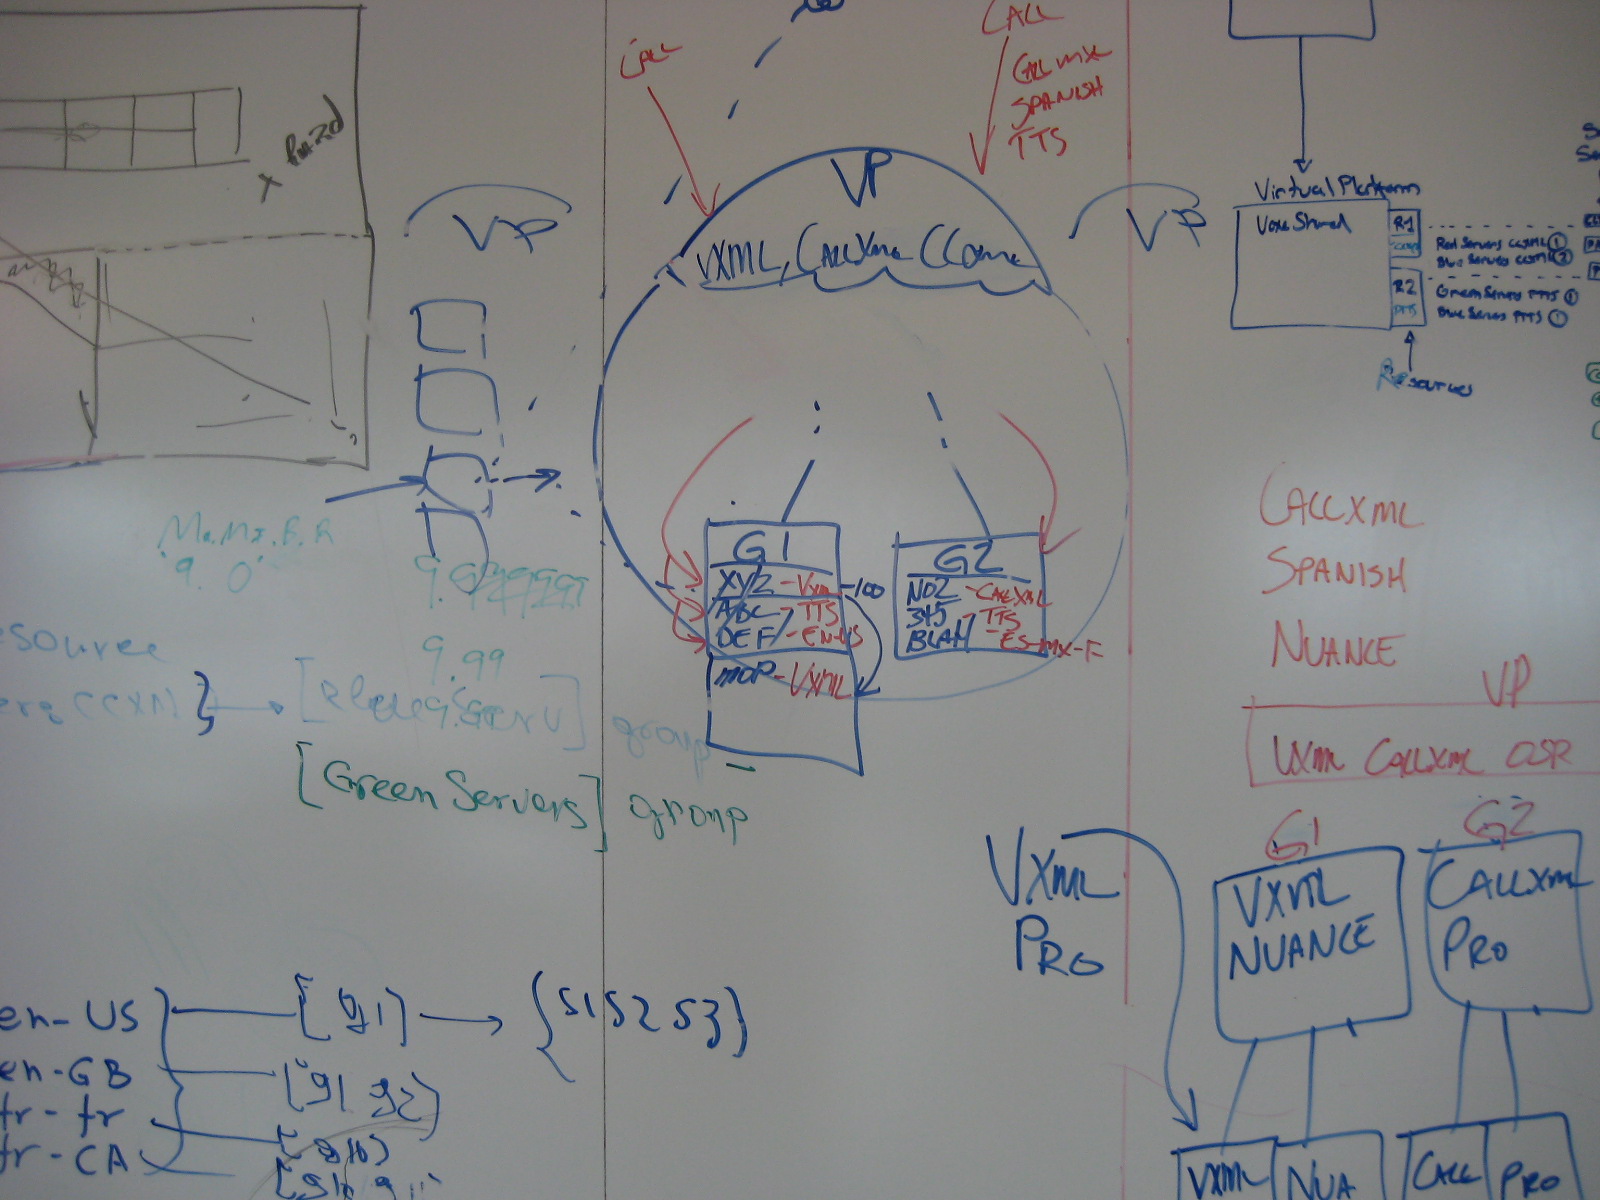 CALL
CALL
CALLMXL
SPANISH
TTS
VP
VXML, CALLXML CCXML
VP
VP
Virtual Platform
Voxeo Shared
R1
CCXML
R2
TTS
Red Servers CCXML ①
Blue Server CCXML ②
Green Servers TTS ①
Blue Servers TTS ①
Resources
9.0
9.99
G1
XYZ - VXML -100
ABC - TTS
DEF - EN-US
MOP - VXML
G2
NOZ - CALLXML
345 TTS
BLAH - ES-MX-F
CALLXML
SPANISH
NUANCE
VP
VXML CALLXML OSR
G1
G2
esource
group
[Green Servers] group
VXML
PRO
VXML
NUANCE
CALLXML
PRO
VXML
NUA
CALL
PRO
en-US [g1] {S1 S2 S3}
en-GB [g1 g2]
fr-fr
fr-CA